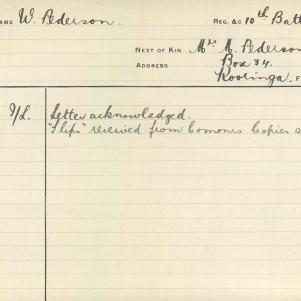 AME W. Pederson. REG. &C 10th Batt
NEXT OF KIN Mrs M. Pederson
ADDRESS Box 34.
Kooringa. F
9/L. Letter acknowledged.
"Slips" received from Comonrs Copies s